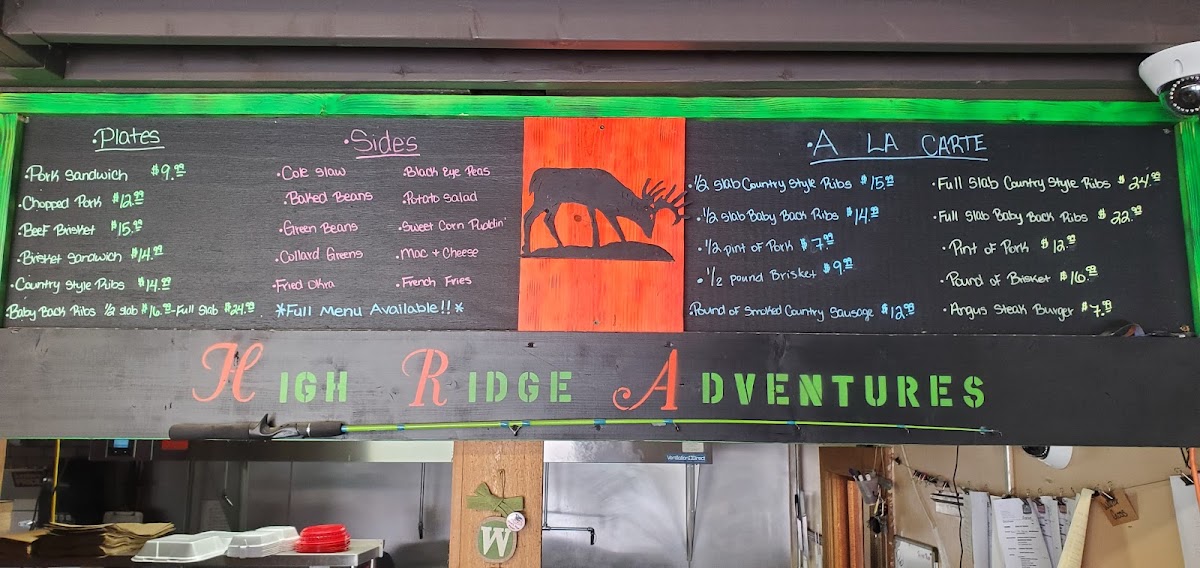 •Plates
•Pork Sandwich $9.99
•Chopped Pork $12.99
•Beef Brisket $15.99
•Brisket Sandwich $14.99
•Country Style Ribs $14.99
•Baby Back Ribs ½ slab $16.99-Full Slab $24.99
•Sides
•Cole Slaw
•Baked Beans
•Green Beans
•Collard Greens
•Fried Okra
•Black Eye Peas
•Potato Salad
•Sweet Corn Puddin'
•Mac + Cheese
•French Fries
*Full Menu Available!!*
•A LA CARTE
•½ Slab Country Style Ribs $15.99
•½ Slab Baby Back Ribs $14.99
•½ pint of Pork $7.99
•½ pound Brisket $9.99
•Pound of Smoked Country Sausage $12.99
•Full Slab Country Style Ribs $24.99
•Full Slab Baby Back Ribs $22.99
•Pint of Pork $12.99
•Pound of Brisket $16.99
•Argus Steak Burger $7.99
HIGH RIDGE ADVENTURES
VentilationDirect
W